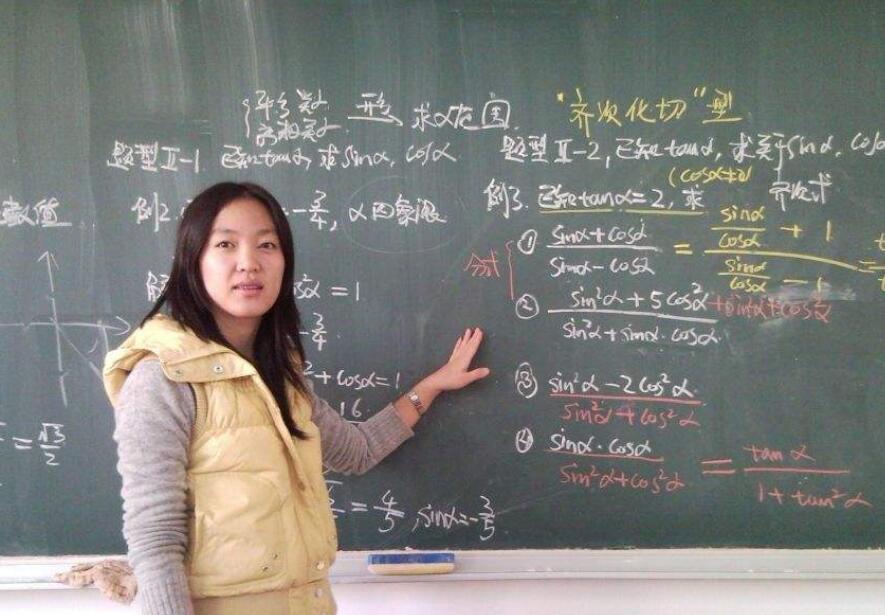 平方关系
商数关系
求α范围
题型Ⅱ-1 已知tanα,求sinα,cosα
例2.
-3/4,α四象限
数值
解
cos²α = 1
-3/4
² + cosα = 1
16
= √3/2
= 4/5, sinα = -3/5
"齐次化切"型
题型Ⅱ-2,已知tanα,求关于sinα,cosα
(cosα≠0) 齐次式
例3. 已知tanα=2,求
分式
① (sinα+cosα)/(sinα-cosα) = (sinα/cosα + 1)/(sinα/cosα - 1) =
② (sin²α+5cos²α)/(sin²α+sinα·cosα) + sin²α+cos²α
③ (sin²α-2cos²α)/(sin²α+cos²α)
④ (sinα·cosα)/(sin²α+cos²α) = tanα/(1+tan²α)